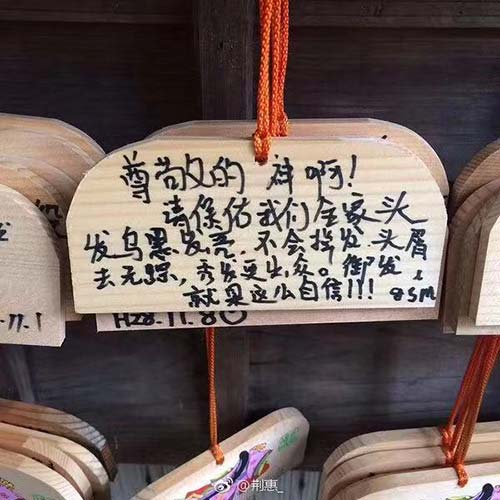 尊敬的 神啊!
请保佑我们全家头
发乌黑发亮,不会掉发,头屑
去无踪,秀发更出众。御发,
就是这么自信!!! 85M
H28.11.8
-11.1
@荆惠_